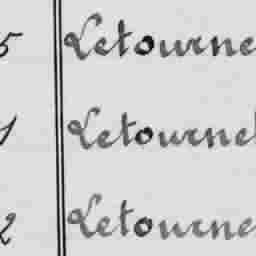 5 Letourne
1 Letournel
2 Letourne